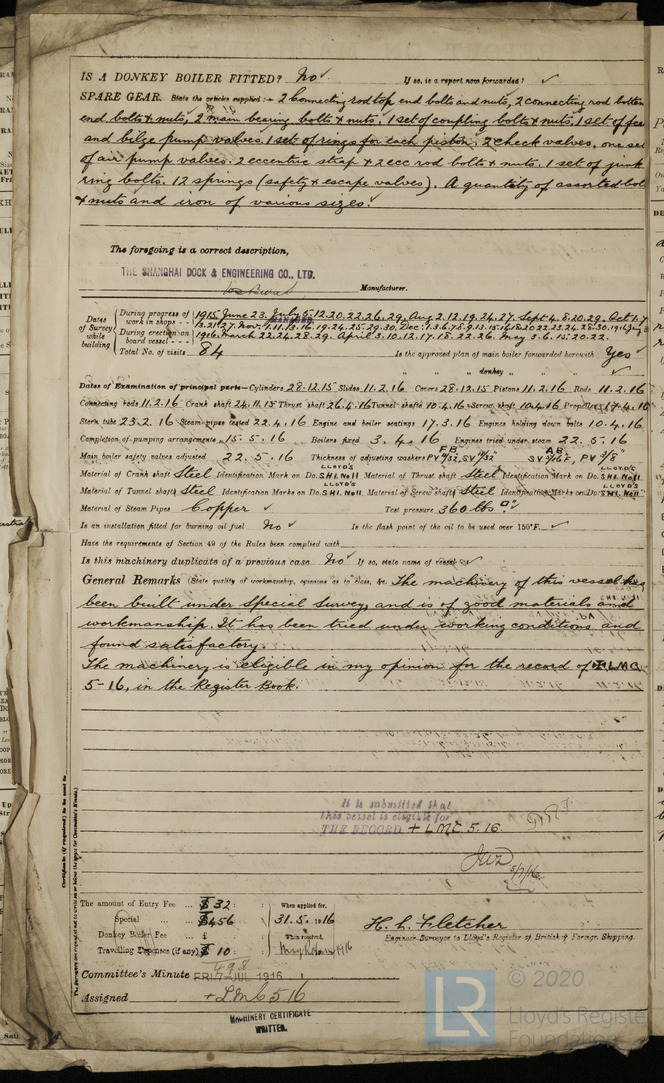 IS A DONKEY BOILER FITTED? No If so, is a report now forwarded?
SPARE GEAR. State the articles supplied:— 2 Connecting rod top end bolts and nuts, 2 connecting rod bottom
end bolts & nuts, 2 main bearing bolts & nuts. 1 set of coupling bolts & nuts, 1 set of fee
and bilge pump valves, 1 set of rings for each piston. 2 check valves, one set
of air pump valves. 2 eccentric strap & 2 ecc rod bolts & nuts. 1 set of junk
ring bolts. 12 springs (safety & escape valves). A quantity of assorted bol
& nuts and iron of various sizes.
The foregoing is a correct description,
THE SHANGHAI DOCK & ENGINEERING CO., LTD.
Manufacturer.
Dates of Survey while building
During progress of work in shops - - 1915 June 23. July 5.12.20.22.26.29. Aug 2.12.19.24.27. Sept 4.8.20.29. Oct 1.7
13.21.27. Nov. 9.11.13.16.19.24.25.29.30. Dec. 1.3.6.7.8.9.13.15.16.18.20.22.23.24.28.30.
During erection on board vessel - - - 1916. March 22.24.28.29. April 3.10.12.17.18.22.26. May 3.6.15.20.22.
Total No. of visits 84 Is the approved plan of main boiler forwarded herewith Yes
" " " donkey " " "
Dates of Examination of principal parts—Cylinders 28.12.15 Slides 11.2.16 Covers 28.12.15 Pistons 11.2.16 Rods 11.2.16
Connecting rods 11.2.16 Crank shaft 24.11.15 Thrust shaft 26.4.16 Tunnel shafts 10.4.16 Screw shaft 10.4.16 Propeller 17.4.16
Stern tube 23.2.16 Steam pipes tested 22.4.16 Engine and boiler seatings 17.3.16 Engines holding down bolts 10.4.16
Completion of pumping arrangements 15.5.16 Boilers fixed 3.4.16 Engines tried under steam 22.5.16
Main boiler safety valves adjusted 22.5.16 Thickness of adjusting washers FB PV 9/32, SV 9/32 AB SV 5/16 F, PV 3/8"
Material of Crank shaft Steel Identification Mark on Do. LLOYD'S SHI. No 11 Material of Thrust shaft Steel Identification Mark on Do. LLOYD'S SHI. No 11
Material of Tunnel shafts Steel Identification Marks on Do. LLOYD'S SHI. No 11 Material of Screw shafts Steel Identification Marks on Do. LLOYD'S SHI. No 11
Material of Steam Pipes Copper Test pressure 360 lbs □"
Is an installation fitted for burning oil fuel No Is the flash point of the oil to be used over 150°F.
Have the requirements of Section 49 of the Rules been complied with
Is this machinery duplicate of a previous case No If so, state name of vessel
General Remarks (State quality of workmanship, opinions as to class, &c. The machinery of this vessel has
been built under Special Survey, and is of good materials and
workmanship. It has been tried under working conditions and
found satisfactory.
The machinery is eligible in my opinion for the record of ✠LMC
5-16, in the Register Book.
It is submitted that
this vessel is eligible for
THE RECORD. + LMC 5.16.
5/7/16
The amount of Entry Fee ... $ 32 : : When applied for,
Special ... $ 456 : : 31.5.1916
Donkey Boiler Fee ... £ : : When received,
Travelling Expenses (if any) $ 10 : : 1916
498
H. L. Fletcher
Engineer Surveyor to Lloyd's Register of British & Foreign Shipping.
Committee's Minute FRI. 7 JUL 1916
Assigned + LMC 5 16
MACHINERY CERTIFICATE
WRITTEN.
© 2020
LR
Lloyd's Register
Foundation